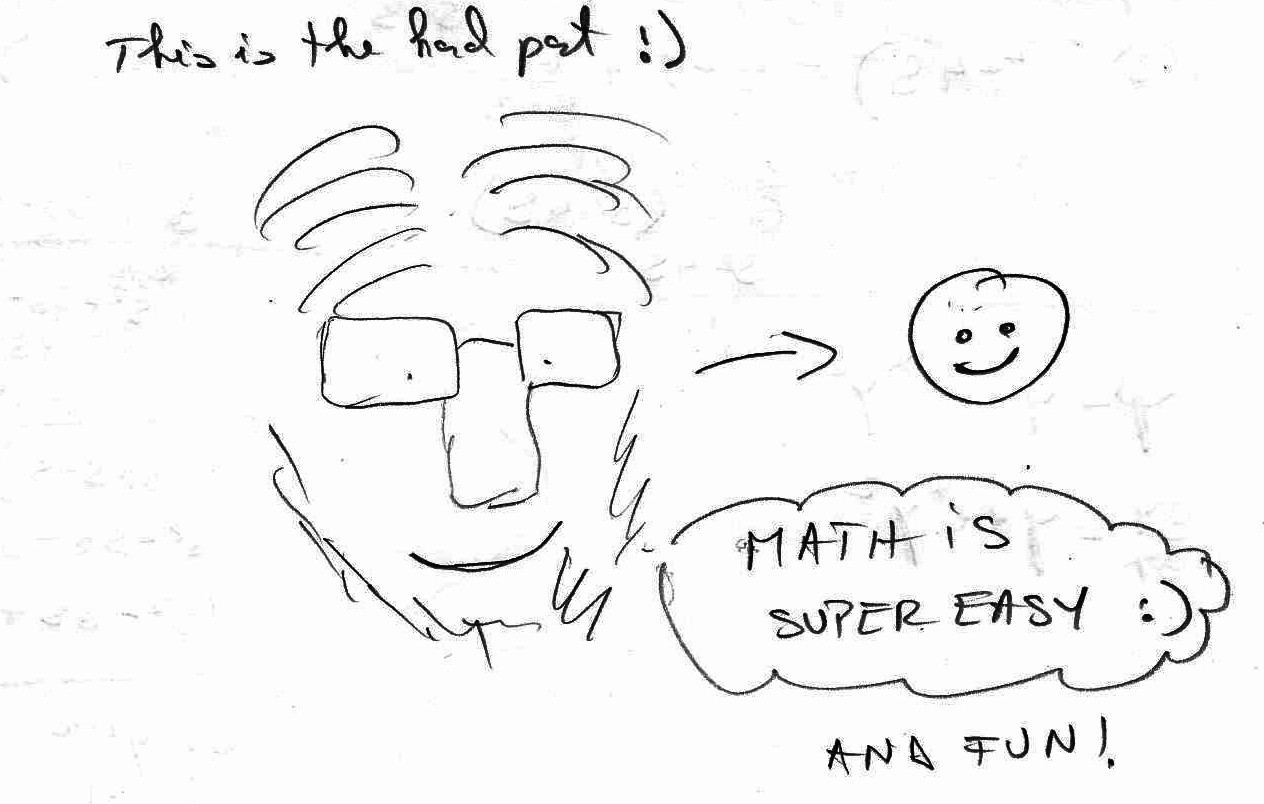 This is the hard part :)
MATH iS
SUPER EASY :)
AND FUN!